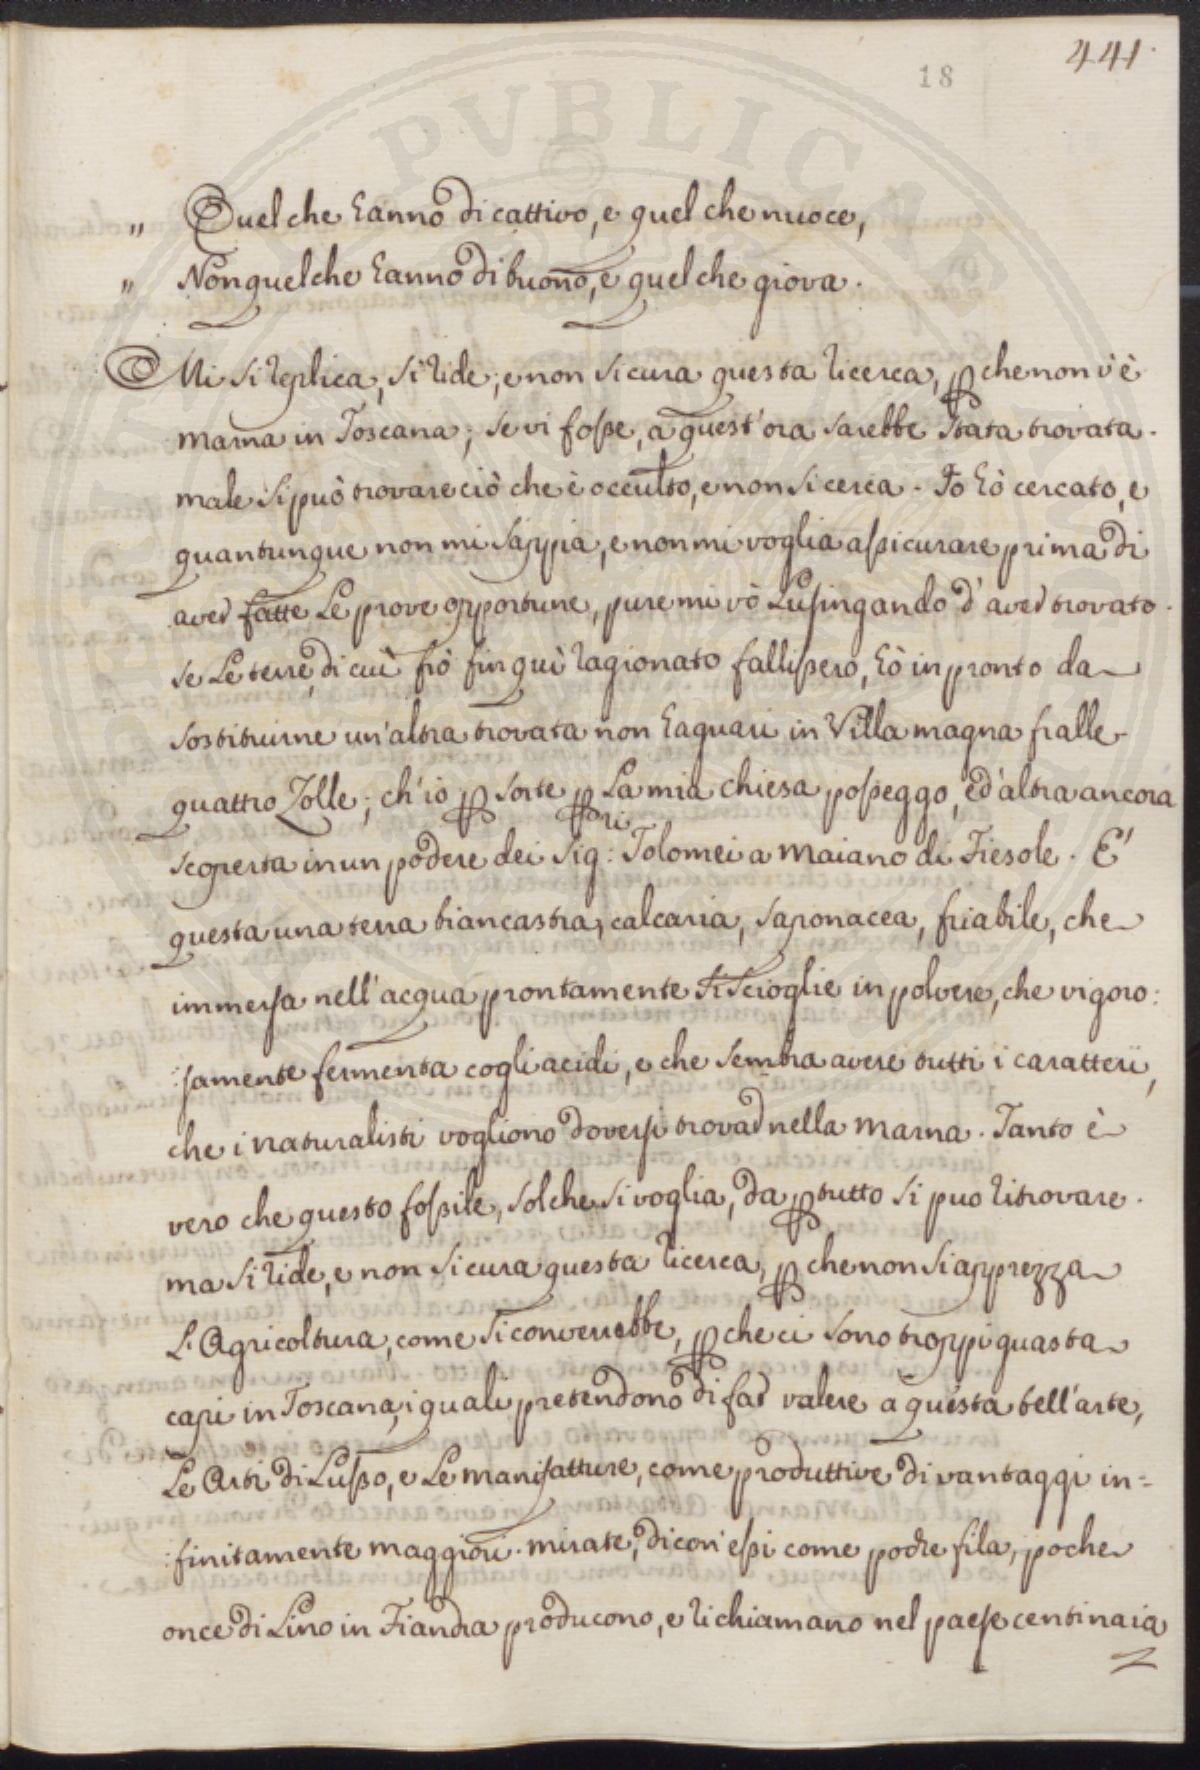 441.
18
" Quel che hanno di cattivo, e quel che nuoce,
" Non quel che hanno di buono, e quel che giova.
Mi si replica, si ride, e non si cura questa ricerca, p che non v'è
marna in Toscana; se vi fosse, a quest'ora sarebbe stata trovata.
male si può trovare ciò che è occulto, e non si cerca. Io hò cercato, e
quantunque non mi sappia, e non mi voglia assicurare prima di
aver fatte le prove opportune, pure mi vò lusingando d'aver trovato.
se le terre, di cui hò fin quì ragionato fallissero, hò in pronto da
sostituirne un'altra trovata non ha guari in Villa magna fralle
quattro Zolle; ch'io p sorte p la mia chiesa posseggo, ed'altra ancora
scoperta in un podere dei Sig:ri Tolomei a Maiano di Fiesole. E'
questa una terra biancastra, calcaria, saponacea, friabile, che
immersa nell'acqua prontamente si scioglie in polvere, che vigoro:
:samente fermenta cogli acidi, e che sembra avere tutti i caratteri,
che i naturalisti vogliono doversi trovar nella marna. Tanto è
vero che questo fossile, sol che si voglia, da p tutto si puo ritrovare.
ma si ride, e non si cura questa ricerca, p che non si apprezza
L'Agricoltura, come si converrebbe, p che ci sono troppi guasta
capi in Toscana, i quali pretendono di far valere a questa bell'arte,
Le Arti di Lusso, e le manifatture, come produttive di vantaggi in:
:finitamente maggiori. mirate, dicon'essi come poche fila, poche
once di Lino in Fiandra producono, e richiamano nel paese centinaia